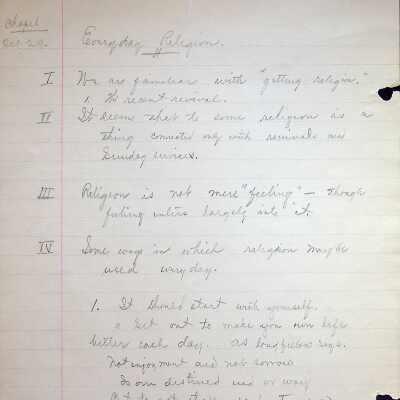 Chapel
Oct. 29.
Everyday Religion.
I We are familiar with "getting religion."
1. The recent revival.
II It seems that to some religion is a
thing connected only with revivals and
Sunday services.
III Religion is not mere "feeling" — though
feeling enters largely into it.
IV Some ways in which religion may be
used everyday.
1. It should start with yourself.
Set out to make your own life
better each day. as Longfellow says.
Not enjoyment and not sorrow
Is our destined end or way
But to act that